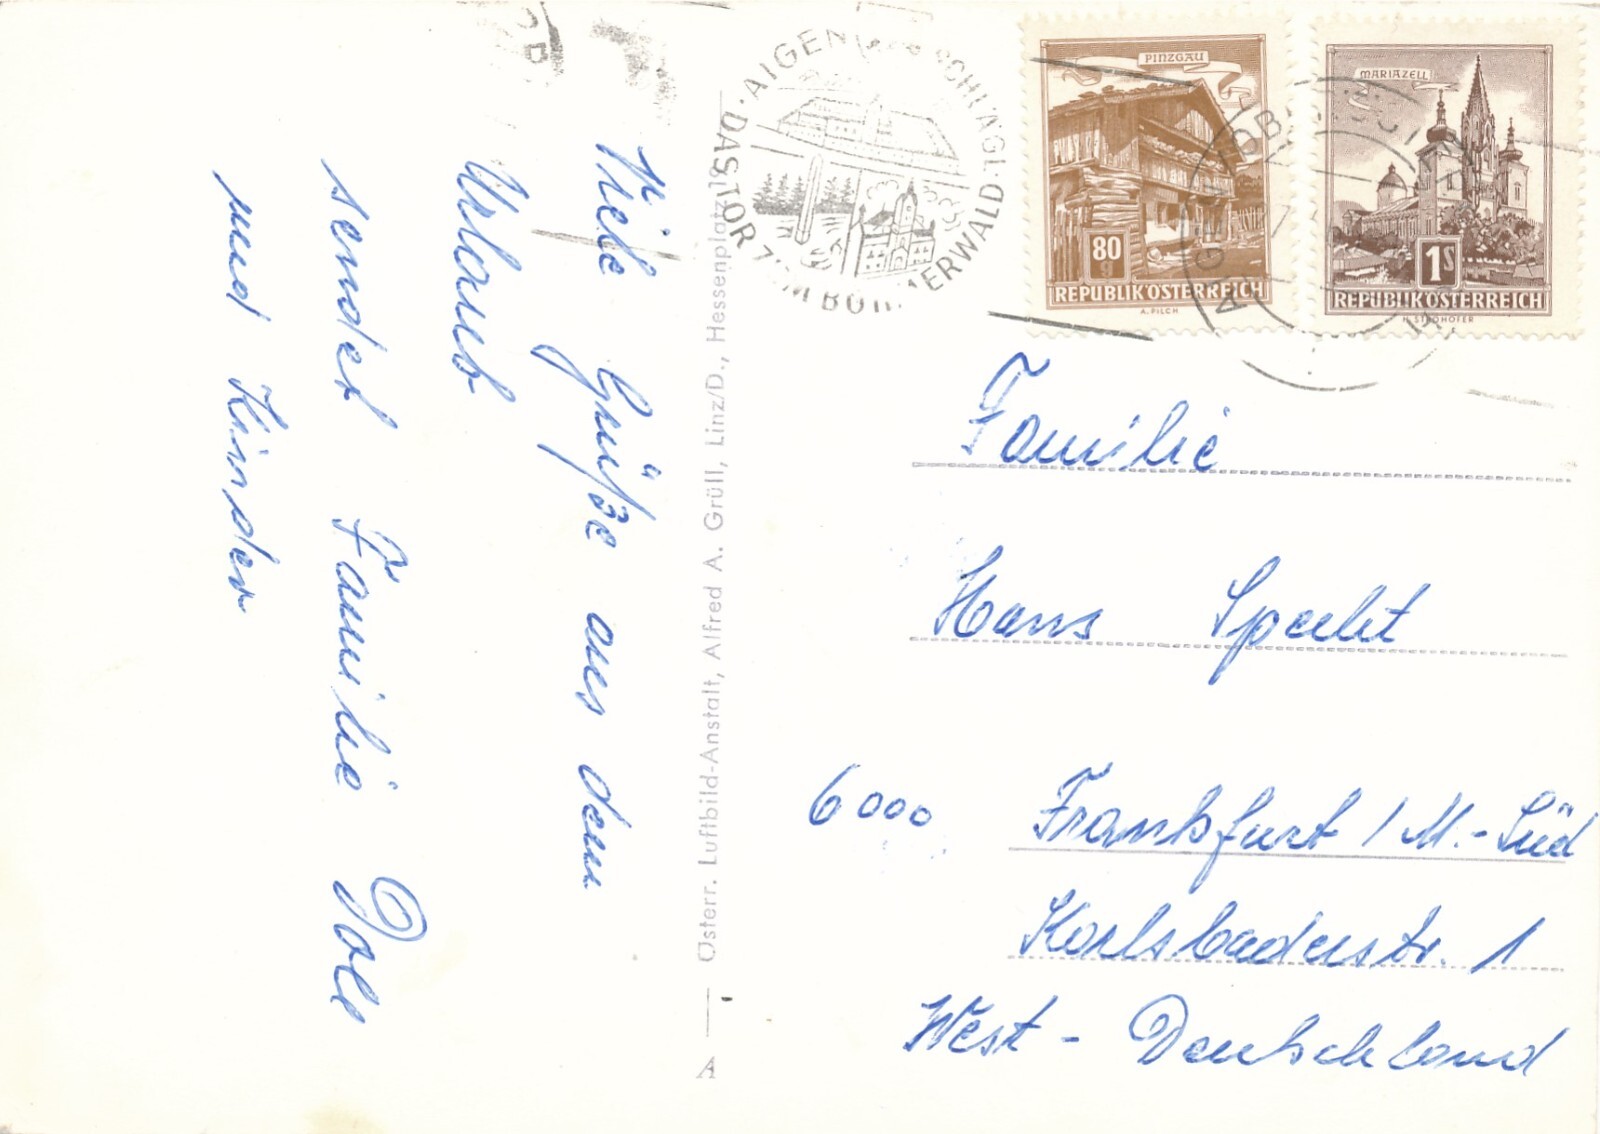 Viele Grüße aus dem
Urlaub
sendet Familie
und Kinder
Österr. Luftbild-Anstalt, Alfred A. Grüll, Linz/D., Hessenplatz 19
A
AIGEN SCHLÄGL
DAS TOR ZUM BÖHMERWALD
PINZGAU
80 g
REPUBLIK ÖSTERREICH
A. PILCH
MARIAZELL
1 S
REPUBLIK ÖSTERREICH
H. STROHOFER
Familie
Hans Specht
6000 Frankfurt / M.-Süd
Karlsbaderstr. 1
West-Deutschland